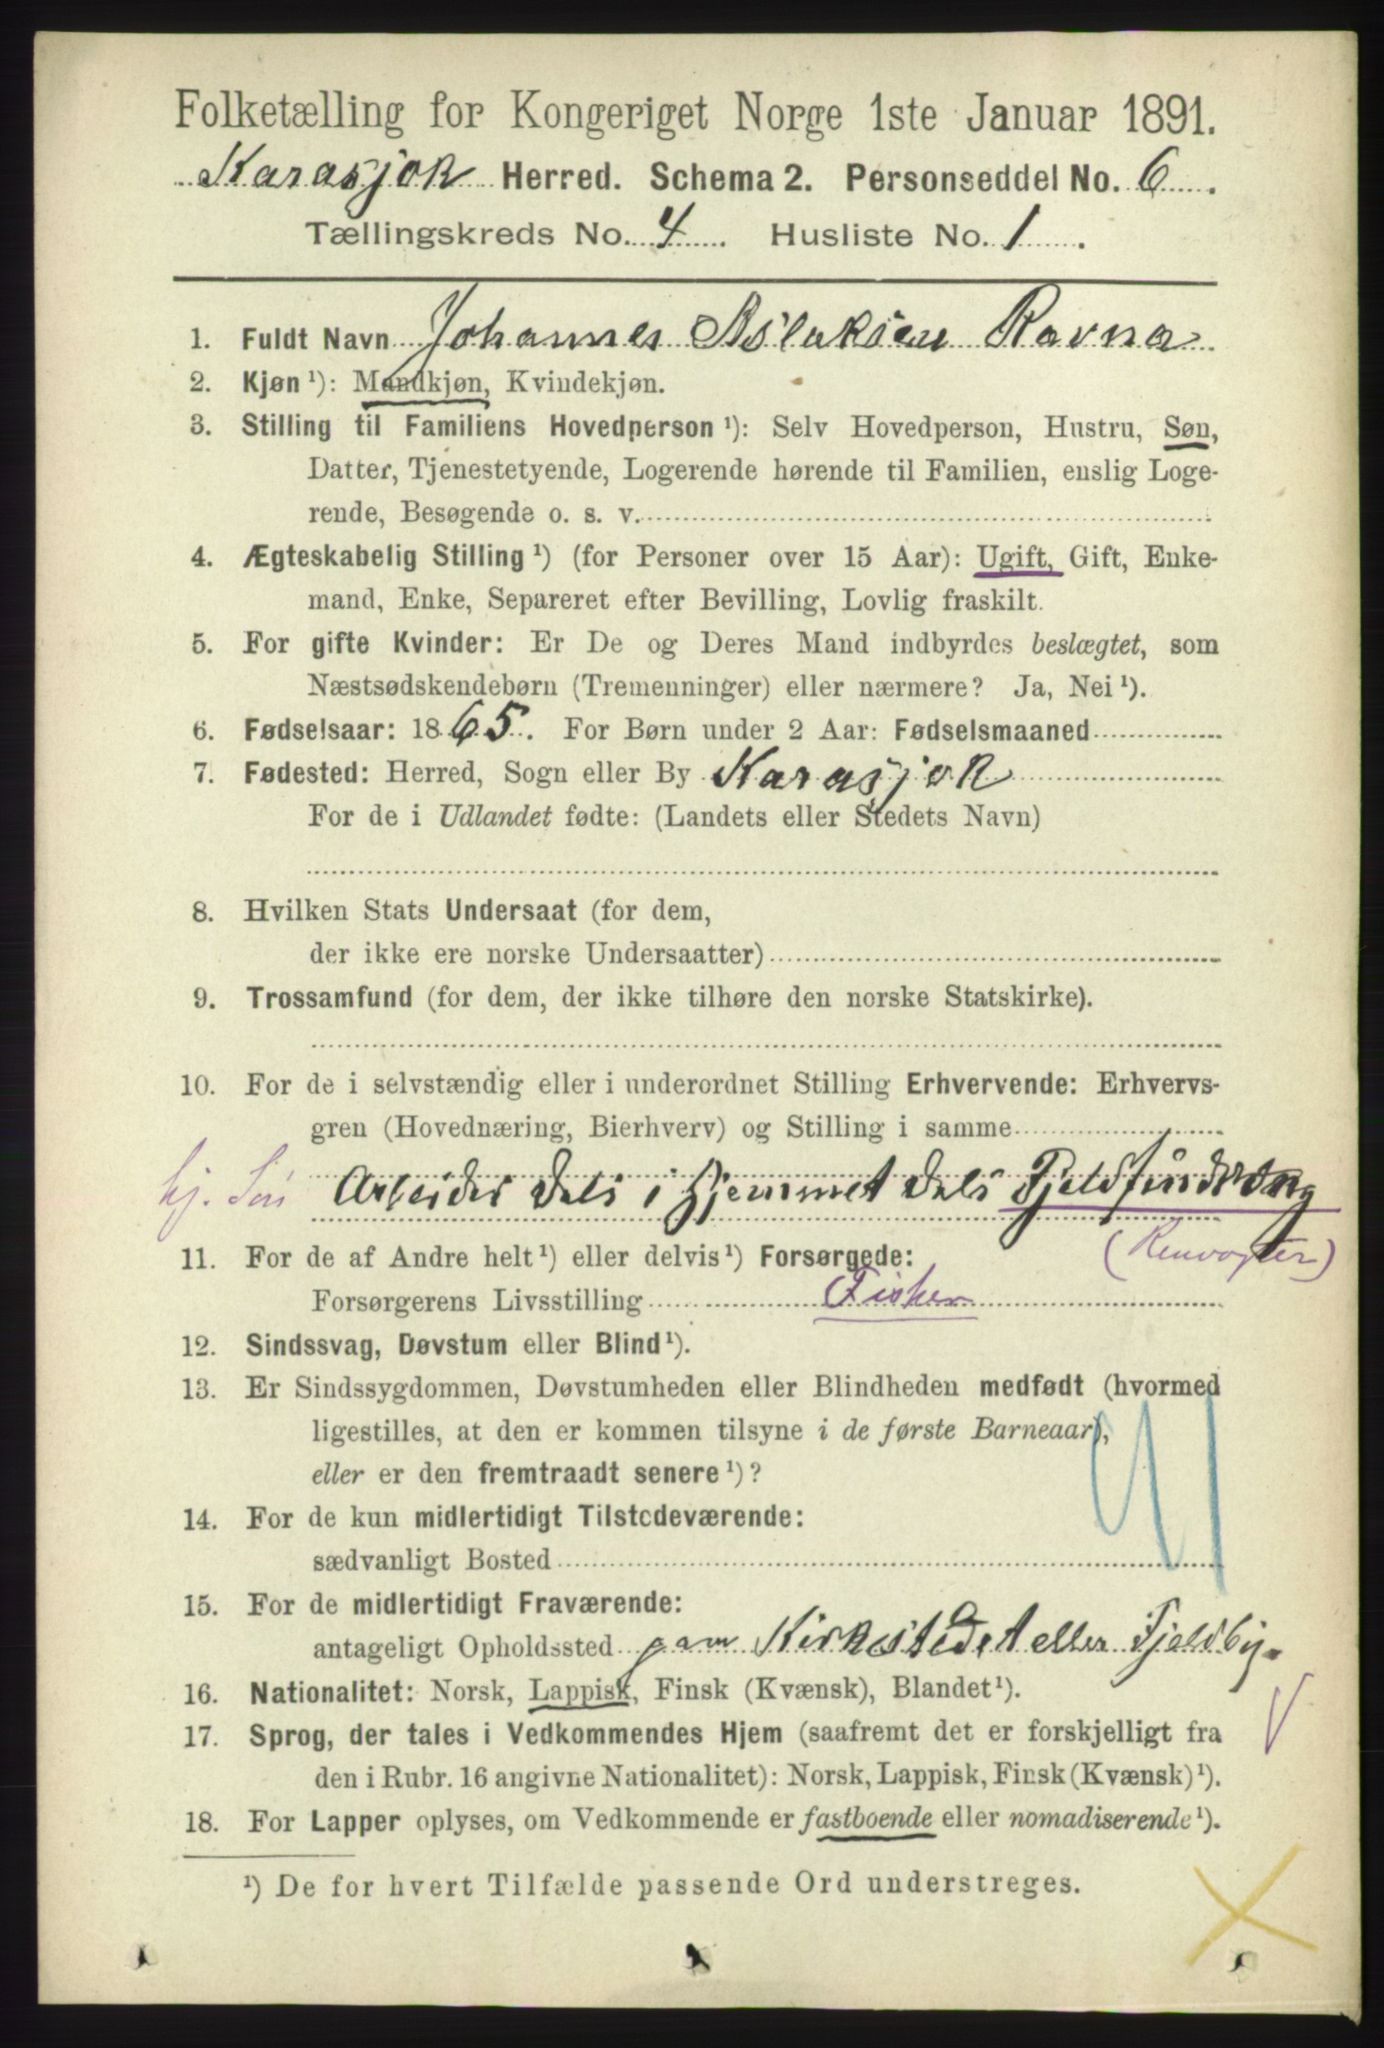 Folketælling for Kongeriget Norge 1ste Januar 1891.
Karasjok Herred. Schema 2. Personseddel No. 6.
Tællingskreds No. 4. Husliste No. 1.
1. Fuldt Navn Johannes Aslaksen Ravna
2. Kjøn ¹): Mandkjøn, Kvindekjøn.
3. Stilling til Familiens Hovedperson ¹): Selv Hovedperson, Hustru, Søn,
Datter, Tjenestetyende, Logerende hørende til Familien, enslig Loge-
rende, Besøgende o. s. v.
4. Ægteskabelig Stilling ¹) (for Personer over 15 Aar): Ugift, Gift, Enke-
mand, Enke, Separeret efter Bevilling, Lovlig fraskilt.
5. For gifte Kvinder: Er De og Deres Mand indbyrdes beslægtet, som
Næstsødskendebørn (Tremenninger) eller nærmere? Ja, Nei ¹).
6. Fødselsaar: 1865. For Børn under 2 Aar: Fødselsmaaned
7. Fødested: Herred, Sogn eller By Karasjok
For de i Udlandet fødte: (Landets eller Stedets Navn)
8. Hvilken Stats Undersaat (for dem,
der ikke ere norske Undersaatter)
9. Trossamfund (for dem, der ikke tilhøre den norske Statskirke).
10. For de i selvstændig eller i underordnet Stilling Erhvervende: Erhvervs-
gren (Hovednæring, Bierhverv) og Stilling i samme
hj. Søn Arbeider dels i Hjemmet dels
(Renvogter)
11. For de af Andre helt ¹) eller delvis ¹) Forsørgede:
Forsørgerens Livsstilling Fisker
12. Sindssvag, Døvstum eller Blind ¹).
13. Er Sindssygdommen, Døvstumheden eller Blindheden medfødt (hvormed
ligestilles, at den er kommen tilsyne i de første Barneaar),
eller er den fremtraadt senere ¹)?
14. For de kun midlertidigt Tilstedeværende:
sædvanligt Bosted
15. For de midlertidigt Fraværende:
antageligt Opholdssted paa Kirkestedet eller Fjeldby.
16. Nationalitet: Norsk, Lappisk, Finsk (Kvænsk), Blandet ¹).
17. Sprog, der tales i Vedkommendes Hjem (saafremt det er forskjelligt fra
den i Rubr. 16 angivne Nationalitet): Norsk, Lappisk, Finsk (Kvænsk) ¹).
18. For Lapper oplyses, om Vedkommende er fastboende eller nomadiserende ¹).
¹) De for hvert Tilfælde passende Ord understreges.